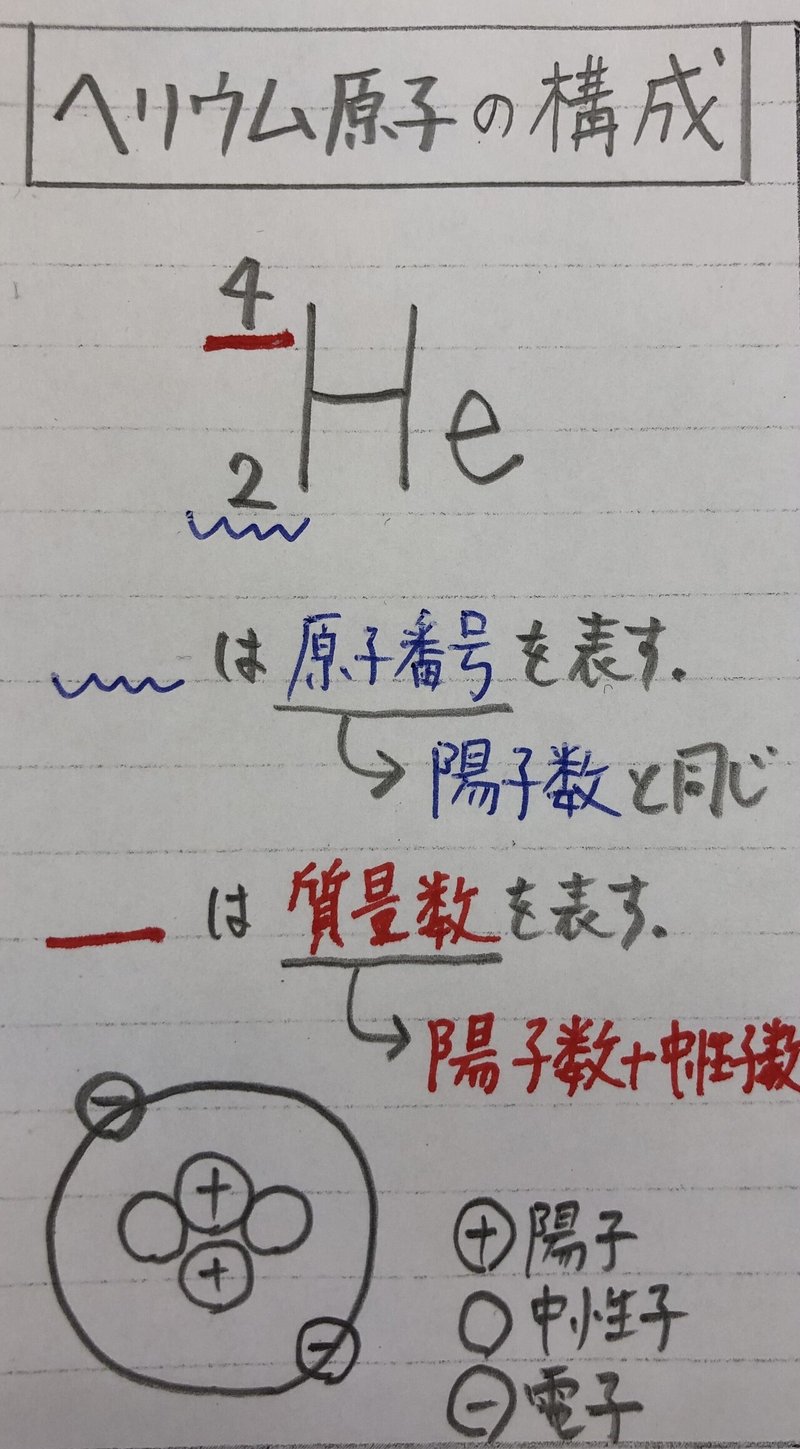 ヘリウム原子の構成
4
He
2
は原子番号を表す.
陽子数と同じ
は質量数を表す.
陽子数+中性子数
+ + - -
+陽子
中性子
-電子